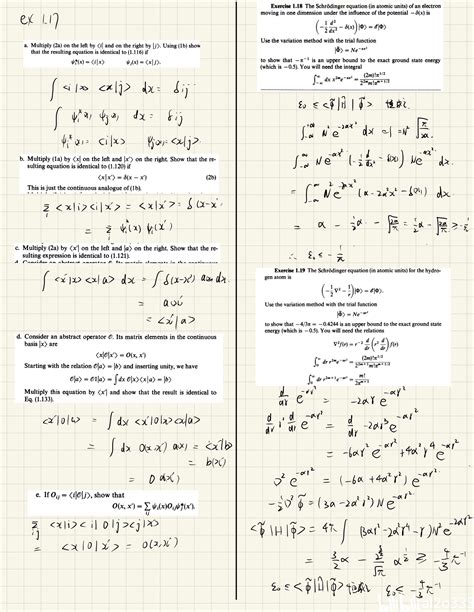 ex 1.17
a. Multiply (2a) on the left by ⟨i| and on the right by |j⟩. Using (1b) show
that the resulting equation is identical to (1.116) if
ψ*ᵢ(x) = ⟨i|x⟩   ψⱼ(x) = ⟨x|j⟩.
∫ ⟨i|x⟩ ⟨x|j⟩ dx = δij
∫ ψi*(x) ψj(x) dx = δij
ψi*(x) = ⟨i|x⟩   ψj(x) = ⟨x|j⟩.
b. Multiply (1a) by ⟨x| on the left and |x'⟩ on the right. Show that the re-
sulting equation is identical to (1.120) if
⟨x|x'⟩ = δ(x − x')   (2b)
This is just the continuous analogue of (1b).
Σi ⟨x|i⟩⟨i|x'⟩ = ⟨x|x'⟩ = δ(x-x')
= Σi ψi*(x) ψi(x')
c. Multiply (2a) by ⟨x'| on the left and |a⟩ on the right. Show that the re-
sulting expression is identical to (1.121).
∫ ⟨x'|x⟩ ⟨x|a⟩ dx = ∫ δ(x-x') a(x) dx
= a(x')
= ⟨x'|a⟩
d. Consider an abstract operator 𝒪. Its matrix elements in the continuous
basis |x⟩ are
⟨x|𝒪|x'⟩ = O(x, x')
Starting with the relation 𝒪|a⟩ = |b⟩ and inserting unity, we have
𝒪|a⟩ = 𝒪1|a⟩ = ∫ dx 𝒪|x⟩⟨x|a⟩ = |b⟩
Multiply this equation by ⟨x'| and show that the result is identical to
Eq. (1.133).
⟨x'|O|a⟩ = ∫ dx ⟨x'|O|x⟩⟨x|a⟩
= ∫ dx O(x,x') a(x) = ⟨x'|b⟩
= b(x')
e. If Oᵢⱼ = ⟨i|𝒪|j⟩, show that
O(x, x') = Σij ψᵢ(x)Oᵢⱼψ*ⱼ(x').
Σij ⟨x|i⟩⟨i|O|j⟩⟨j|x'⟩
= ⟨x|O|x'⟩ = O(x,x')
Exercise 1.18 The Schrödinger equation (in atomic units) of an electron
moving in one dimension under the influence of the potential −δ(x) is
(−1/2 d²/dx² − δ(x))|Φ⟩ = ℰ|Φ⟩
Use the variation method with the trial function
|Φ̃⟩ = Ne^(−αx²)
to show that −π⁻¹ is an upper bound to the exact ground state energy
(which is −0.5). You will need the integral
∫_{−∞}^{∞} dx x^{2m} e^(−αx²) = (2m)!π^{1/2} / (2^{2m} m! α^{m+1/2})
ε₀ ≤ ⟨Φ̃|H|Φ̃⟩
∫_{-∞}^{∞} N²e^(-2αx²) dx = 1 = N² √(π/2α)
∫_{-∞}^{∞} Ne^(-αx²) (-1/2 d²/dx² - δ(x)) Ne^(-αx²) dx
= ∫_{-∞}^{∞} N²e^(-2αx²) (α - 2α²x² - δ(x)) dx.
= α - 1/2 α - √(2α/π) = 1/2 α - √(2α/π) ≥ -1/π
∴ ε₀ ≤ -1/π
Exercise 1.19 The Schrödinger equation (in atomic units) for the hydro-
gen atom is
(−1/2 ∇² − 1/r)|Φ⟩ = ℰ|Φ⟩.
Use the variation method with the trial function
|Φ̃⟩ = Ne^(−αr²)
to show that −4/3π = −0.4244 is an upper bound to the exact ground state
energy (which is −0.5). You will need the relations
∇²f(r) = r⁻² d/dr (r² d/dr) f(r)
∫₀^∞ dr r^{2m} e^(−αr²) = (2m)!π^{1/2} / (2^{2m+1} m! α^{m+1/2})
∫₀^∞ dr r^{2m+1} e^(−αr²) = m! / (2α^{m+1})
d/dr e^(-αr²) = -2αr e^(-αr²)
d/dr r² d/dr e^(-αr²) = d/dr -2αr³ e^(-αr²)
= -6αr² e^(-αr²) + 4α²r⁴ e^(-αr²)
∇² e^(-αr²) = (-6α + 4α²r²) e^(-αr²)
-1/2 ∇² Φ̃ = (3α - 2α²r²) Ne^(-αr²)
⟨Φ̃|H|Φ̃⟩ = 4π ∫ (3αr² - 2α²r⁴ - r) N²e^(-2αr²)